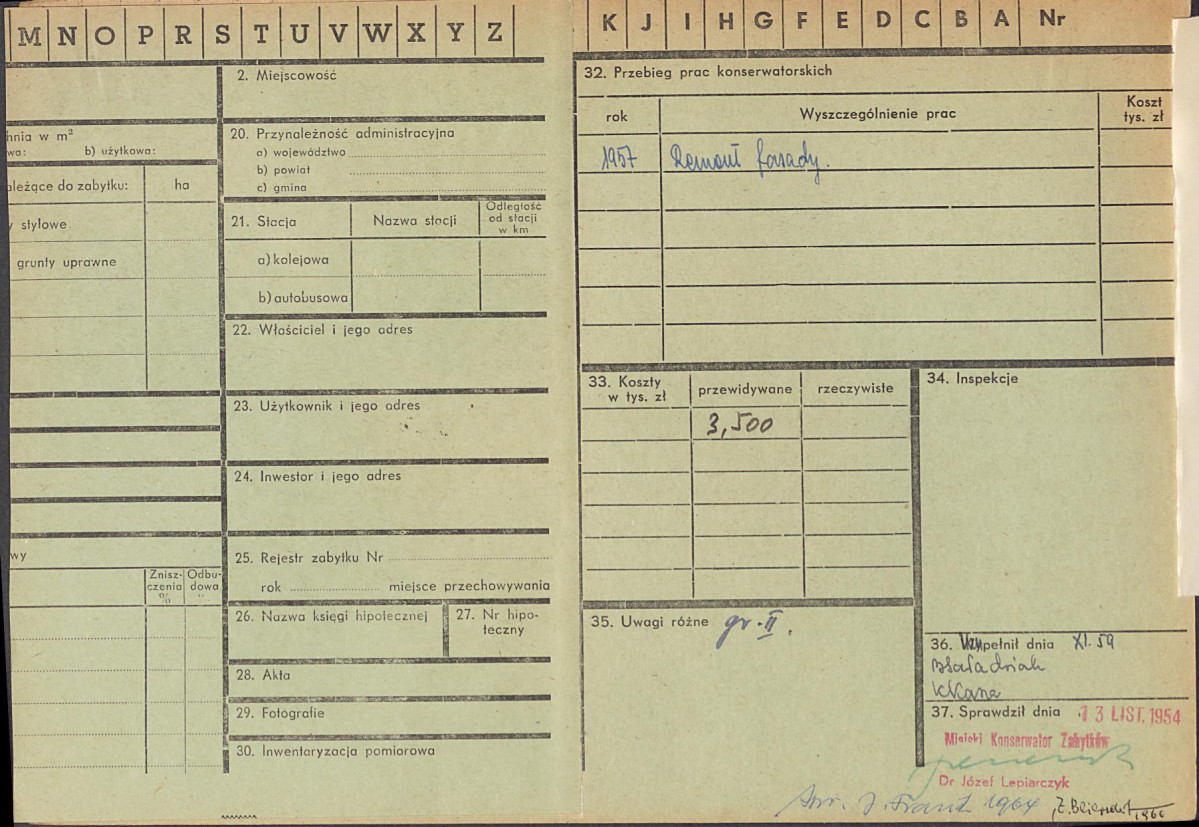 M N O P R S T U V W X Y Z
K J I H G F E D C B A Nr
hnia w m²
wa: b) użytkowa:
ależące do zabytku: ha
y stylowe
grunty uprawne
wy
Znisz-czenia % Odbu-dowa %
2. Miejscowość
20. Przynależność administracyjna
a) województwo
b) powiat
c) gmina
21. Stacja Nazwa stacji Odległość od stacji w km
a) kolejowa
b) autobusowa
22. Właściciel i jego adres
23. Użytkownik i jego adres
24. Inwestor i jego adres
25. Rejestr zabytku Nr
rok miejsce przechowywania
26. Nazwa księgi hipotecznej 27. Nr hipo-teczny
28. Akta
29. Fotografie
30. Inwentaryzacja pomiarowa
32. Przebieg prac konserwatorskich
rok Wyszczególnienie prac Koszt tys. zł
1957 Remont fasady.
33. Koszty w tys. zł przewidywane rzeczywiste
3,500
34. Inspekcje
35. Uwagi różne gr. II.
36. Wypełnił dnia XI. 59
37. Sprawdził dnia 13 LIST. 1954
Miejski Konserwator Zabytków
Dr Józef Lepiarczyk
1964
1966